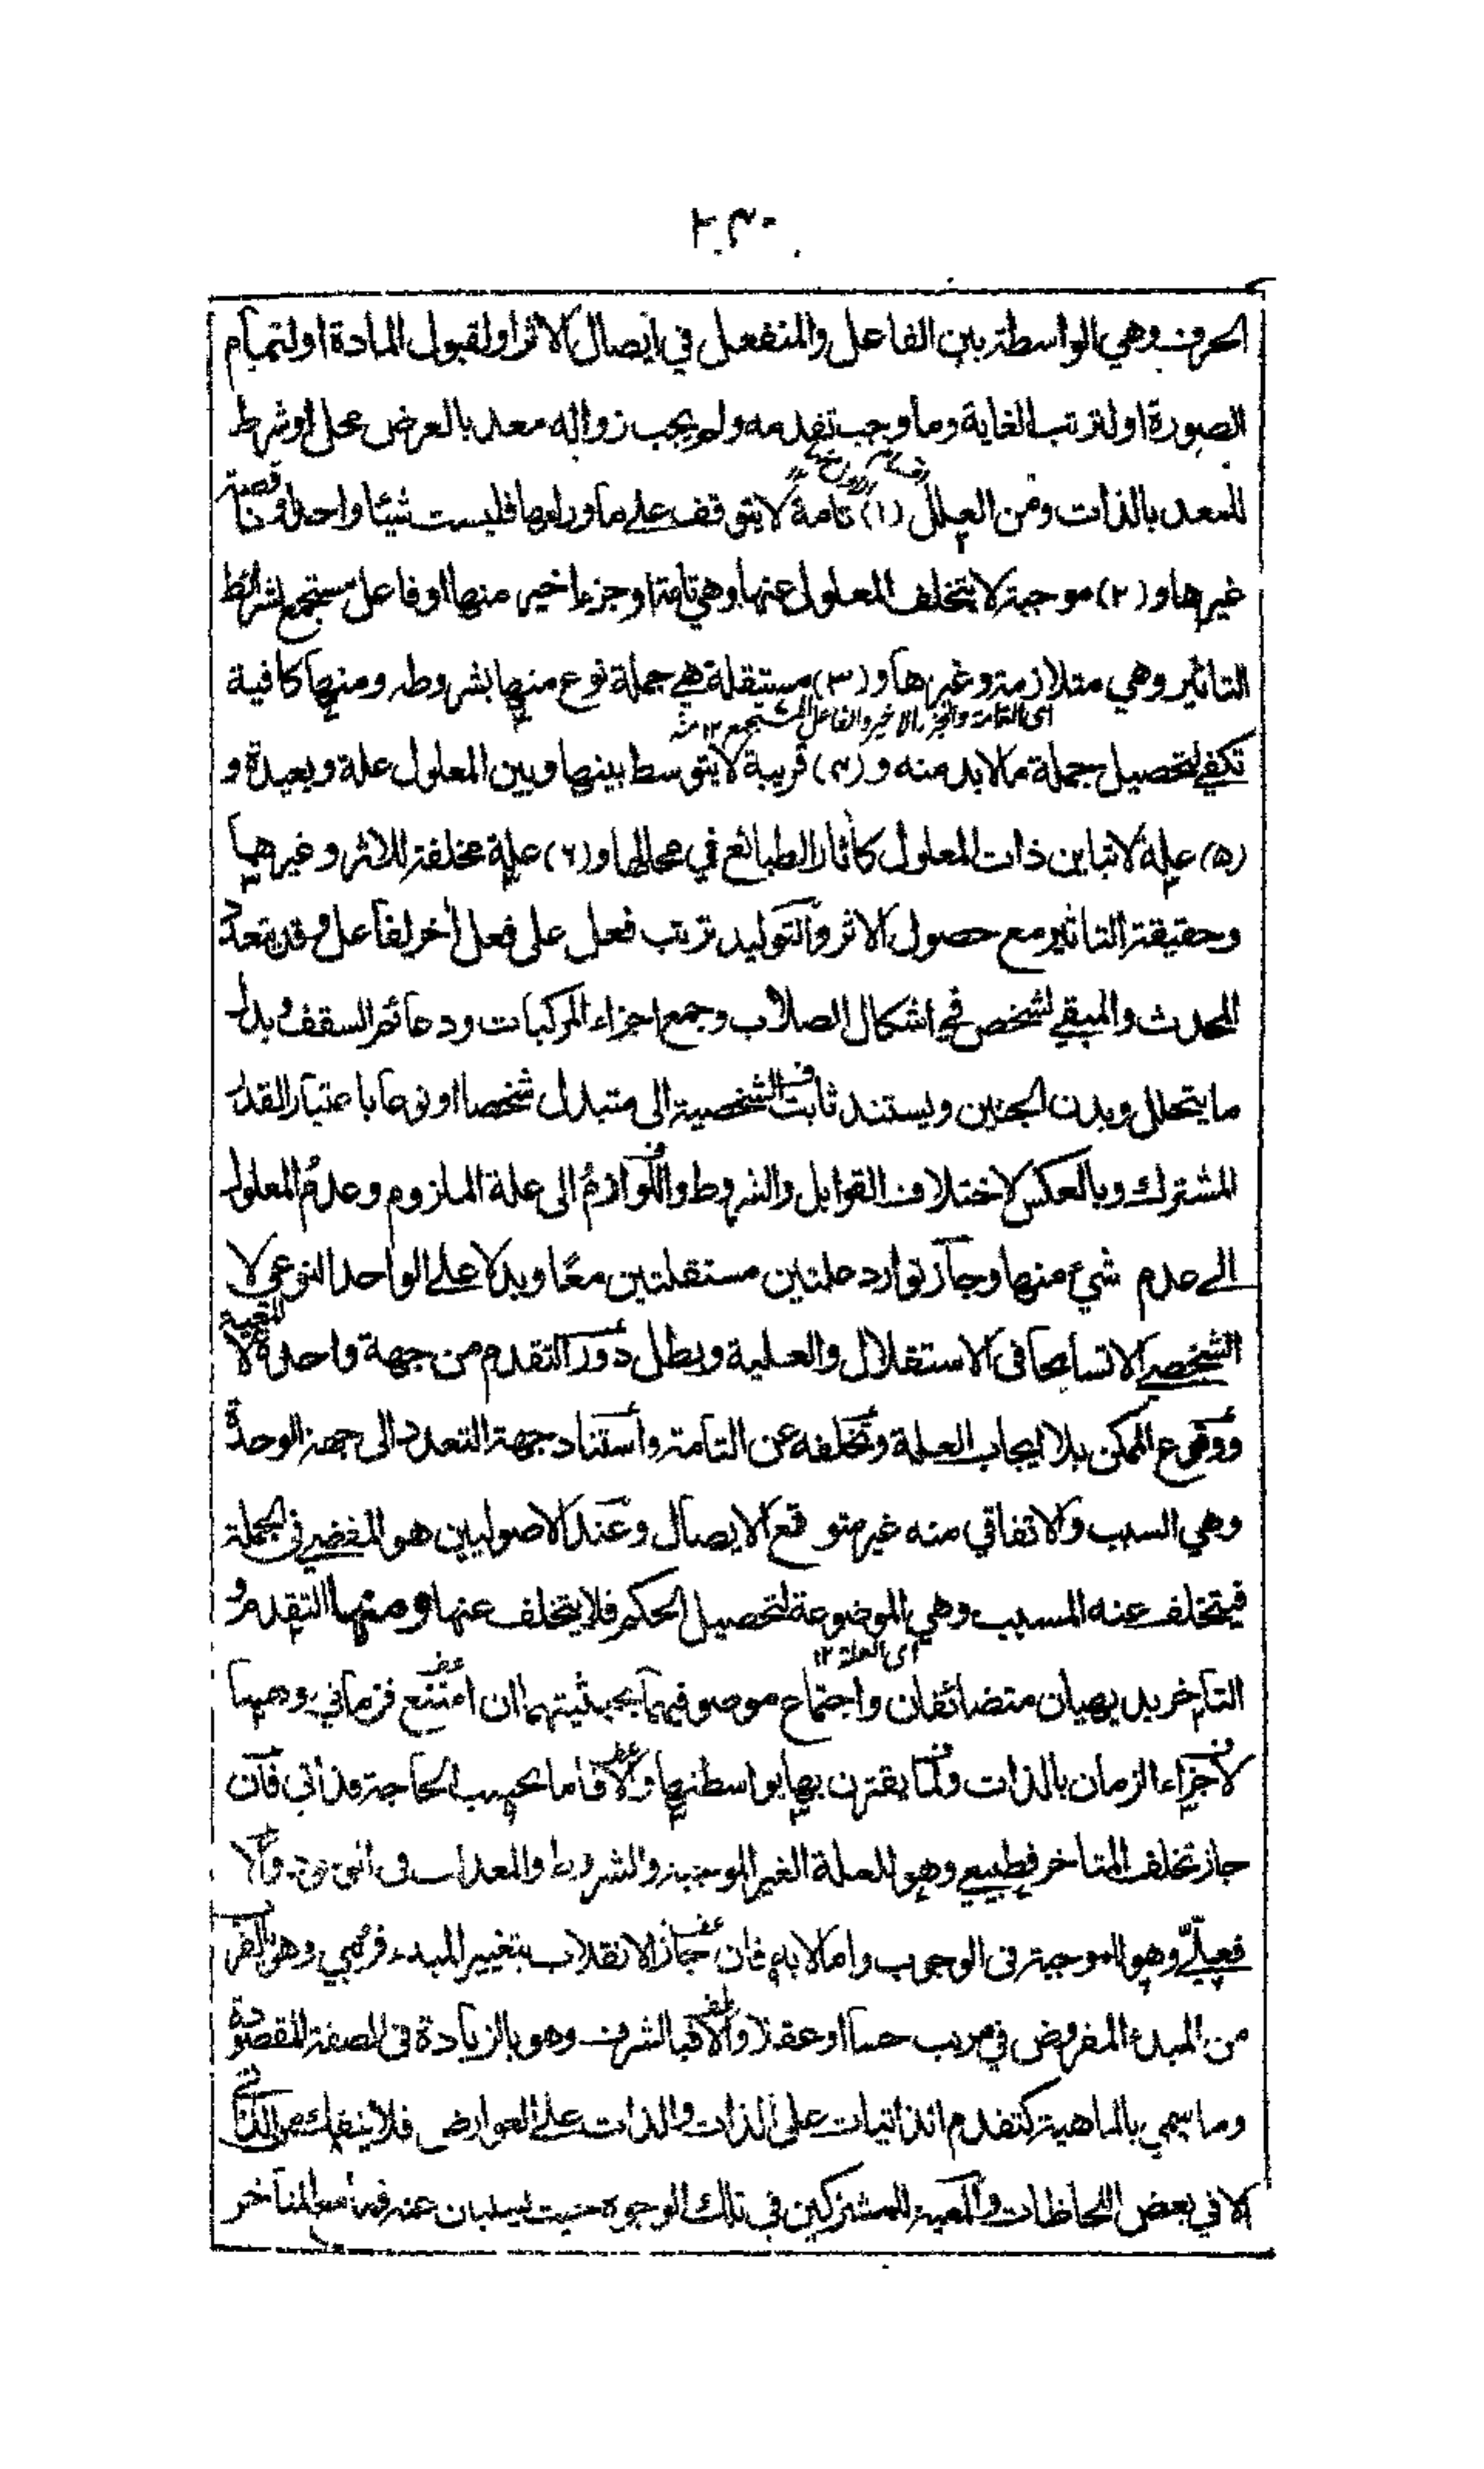 ٢٣٠
الحرف وهي الواسطة بين الفاعل والمنفعل في ايصال الاثر او لقبول المادة او لتمام
الصورة او لترتب الغاية وما وجب تقدمه ولم يجب زواله معد بالعرض محل او شرط
للمعد بالذات ومن العلل (١) تامة لا يتوقف على ما وراءها فليست شيئا واحدا وناقصة
غيرها و (٢) موجبة لا يتخلف المعلول عنها وهي تامة او جزء اخير منها او فاعل مستجمع لشرائط
التاثير وهي متلازمة وغيرها و (٣) مستقلة هي جملة نوع منها بشروطه ومنها كافية
اى التامة والجزء الاخير والفاعل المستجمع ١٢ منه
تكفي لتحصيل جملة ما لابد منه و (٤) قريبة لا يتوسط بينها وبين المعلول علة وبعيدة و
(٥) علة لا تباين ذات المعلول كآثار الطبائع في محالها و (٦) علة مخلفة للاثر وغيرهما
وحقيقة التاثير مع حصول الاثر والتوليد ترتب فعل على فعل آخر لفاعل وقد يتعدد
المحدث والمبقي لشخص في اشكال الصلاب وجمع اجزاء المركبات ودعائم السقف وبدل
ما يتحلل وبدن الجنين ويستند ثابت الشخصية الى متبدل شخصا او نوعا باعتبار القدر
المشترك وبالعكس لاختلاف القوابل والشروط واللوازم الى علة الملزوم وعدم المعلول
الى عدم شيء منها وجاز توارد علتين مستقلتين معا وبدلا على الواحد النوعي لا
الشخصي الا تسامحا فى الاستقلال والعلية وبطل دور التقدم من جهة واحدة لا المعية
ووقوع الممكن بلا ايجاب العلة وتخلفه عن التامة واستناد جهة التعدد الى جهة الوحدة
وهي السبب والاتفاقي منه غير متوقع الايصال وعند الاصوليين هو المفضي في الجملة
فيتخلف عنه المسبب وهي الموضوعة لتحصيل الحكم فلا يتخلف عنها ومنها التقدم و
اى العلة ١٢
التاخر بديهيان متضائفان واجتماع موصوفيهما بحيثيتهما ان امتنع فزماني وهما
لاجزاء الزمان بالذات ولما يقترن بها بواسطتها والا فاما بحسب الحاجة فذاتي فان
جاز تخلف المتاخر فطبيعي وهو للعلة الغير الموجبة والشروط والمعدات فى الوجود والا
فعلي وهو الموجبة فى الوجوب واما لا به فان جاز الانقلاب بتغيير المبدء فرتبي وهو القرب
من المبدء المفروض في مرتب حسا او عقلا والا فبالشرف وهو بالزيادة فى الصفة المقصودة
وما سمي بالماهية كتقدم الذاتيات على الذات والذات على العوارض فلا ينفك عن الذاتي
الا في بعض اللحاظات والمعية للمشتركين في تلك الوجوه حيث يسلبان عنه المتاخر